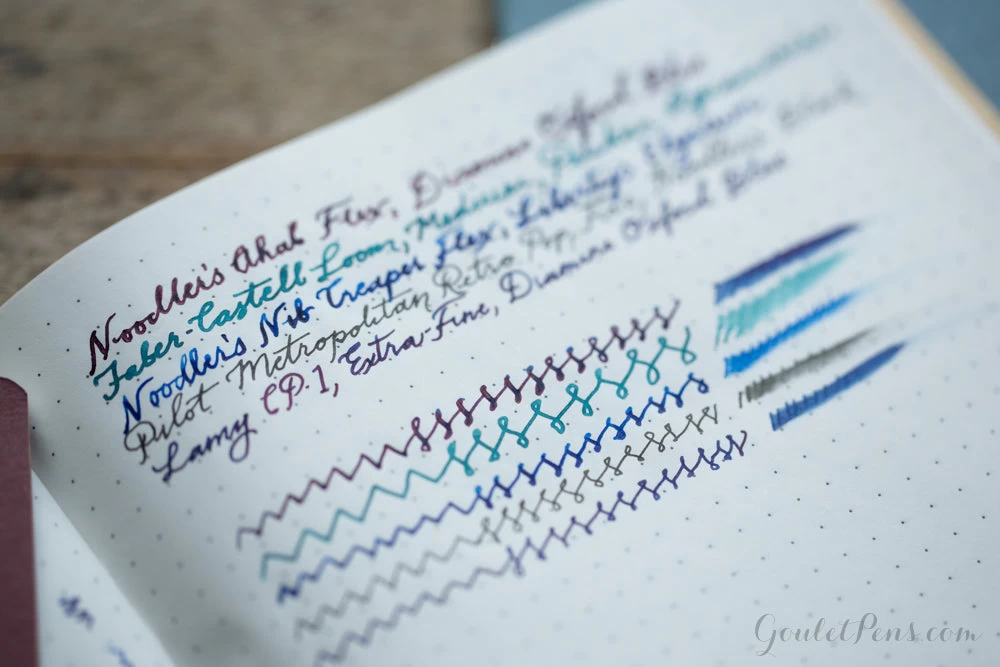 Noodler's Ahab Flex, Diamine Oxford Blue
Faber-Castell Loom, Medium,
Noodler's Nib Creaper Flex, Liberty's Elysium
Pilot Metropolitan Retro Pop, Fine, Noodler's Black
Lamy CP.1, Extra-Fine, Diamine Oxford Blue
GouletPens.com